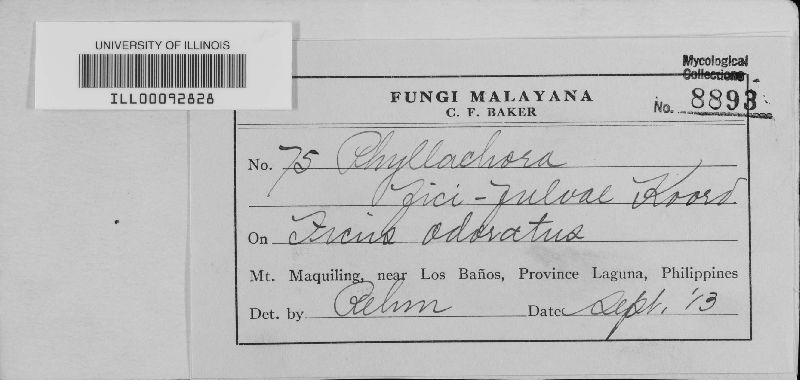 UNIVERSITY OF ILLINOIS
ILL00092828
Mycological
Collections
No. 8893
FUNGI MALAYANA
C. F. BAKER
No. 75 Phyllachora
Fici-fulvae Koord
On Ficus odoratus
Mt. Maquiling, near Los Baños, Province Laguna, Philippines
Det. by Rehm Date Sept. '13